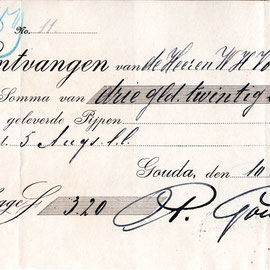 No. 11
Ontvangen van de Heeren W H Vo
Somma van drie gld. twintig
geleverde Pijpen
5 Augs. l.l.
Gouda, den 10
Zegge f 3.20 P. Gou